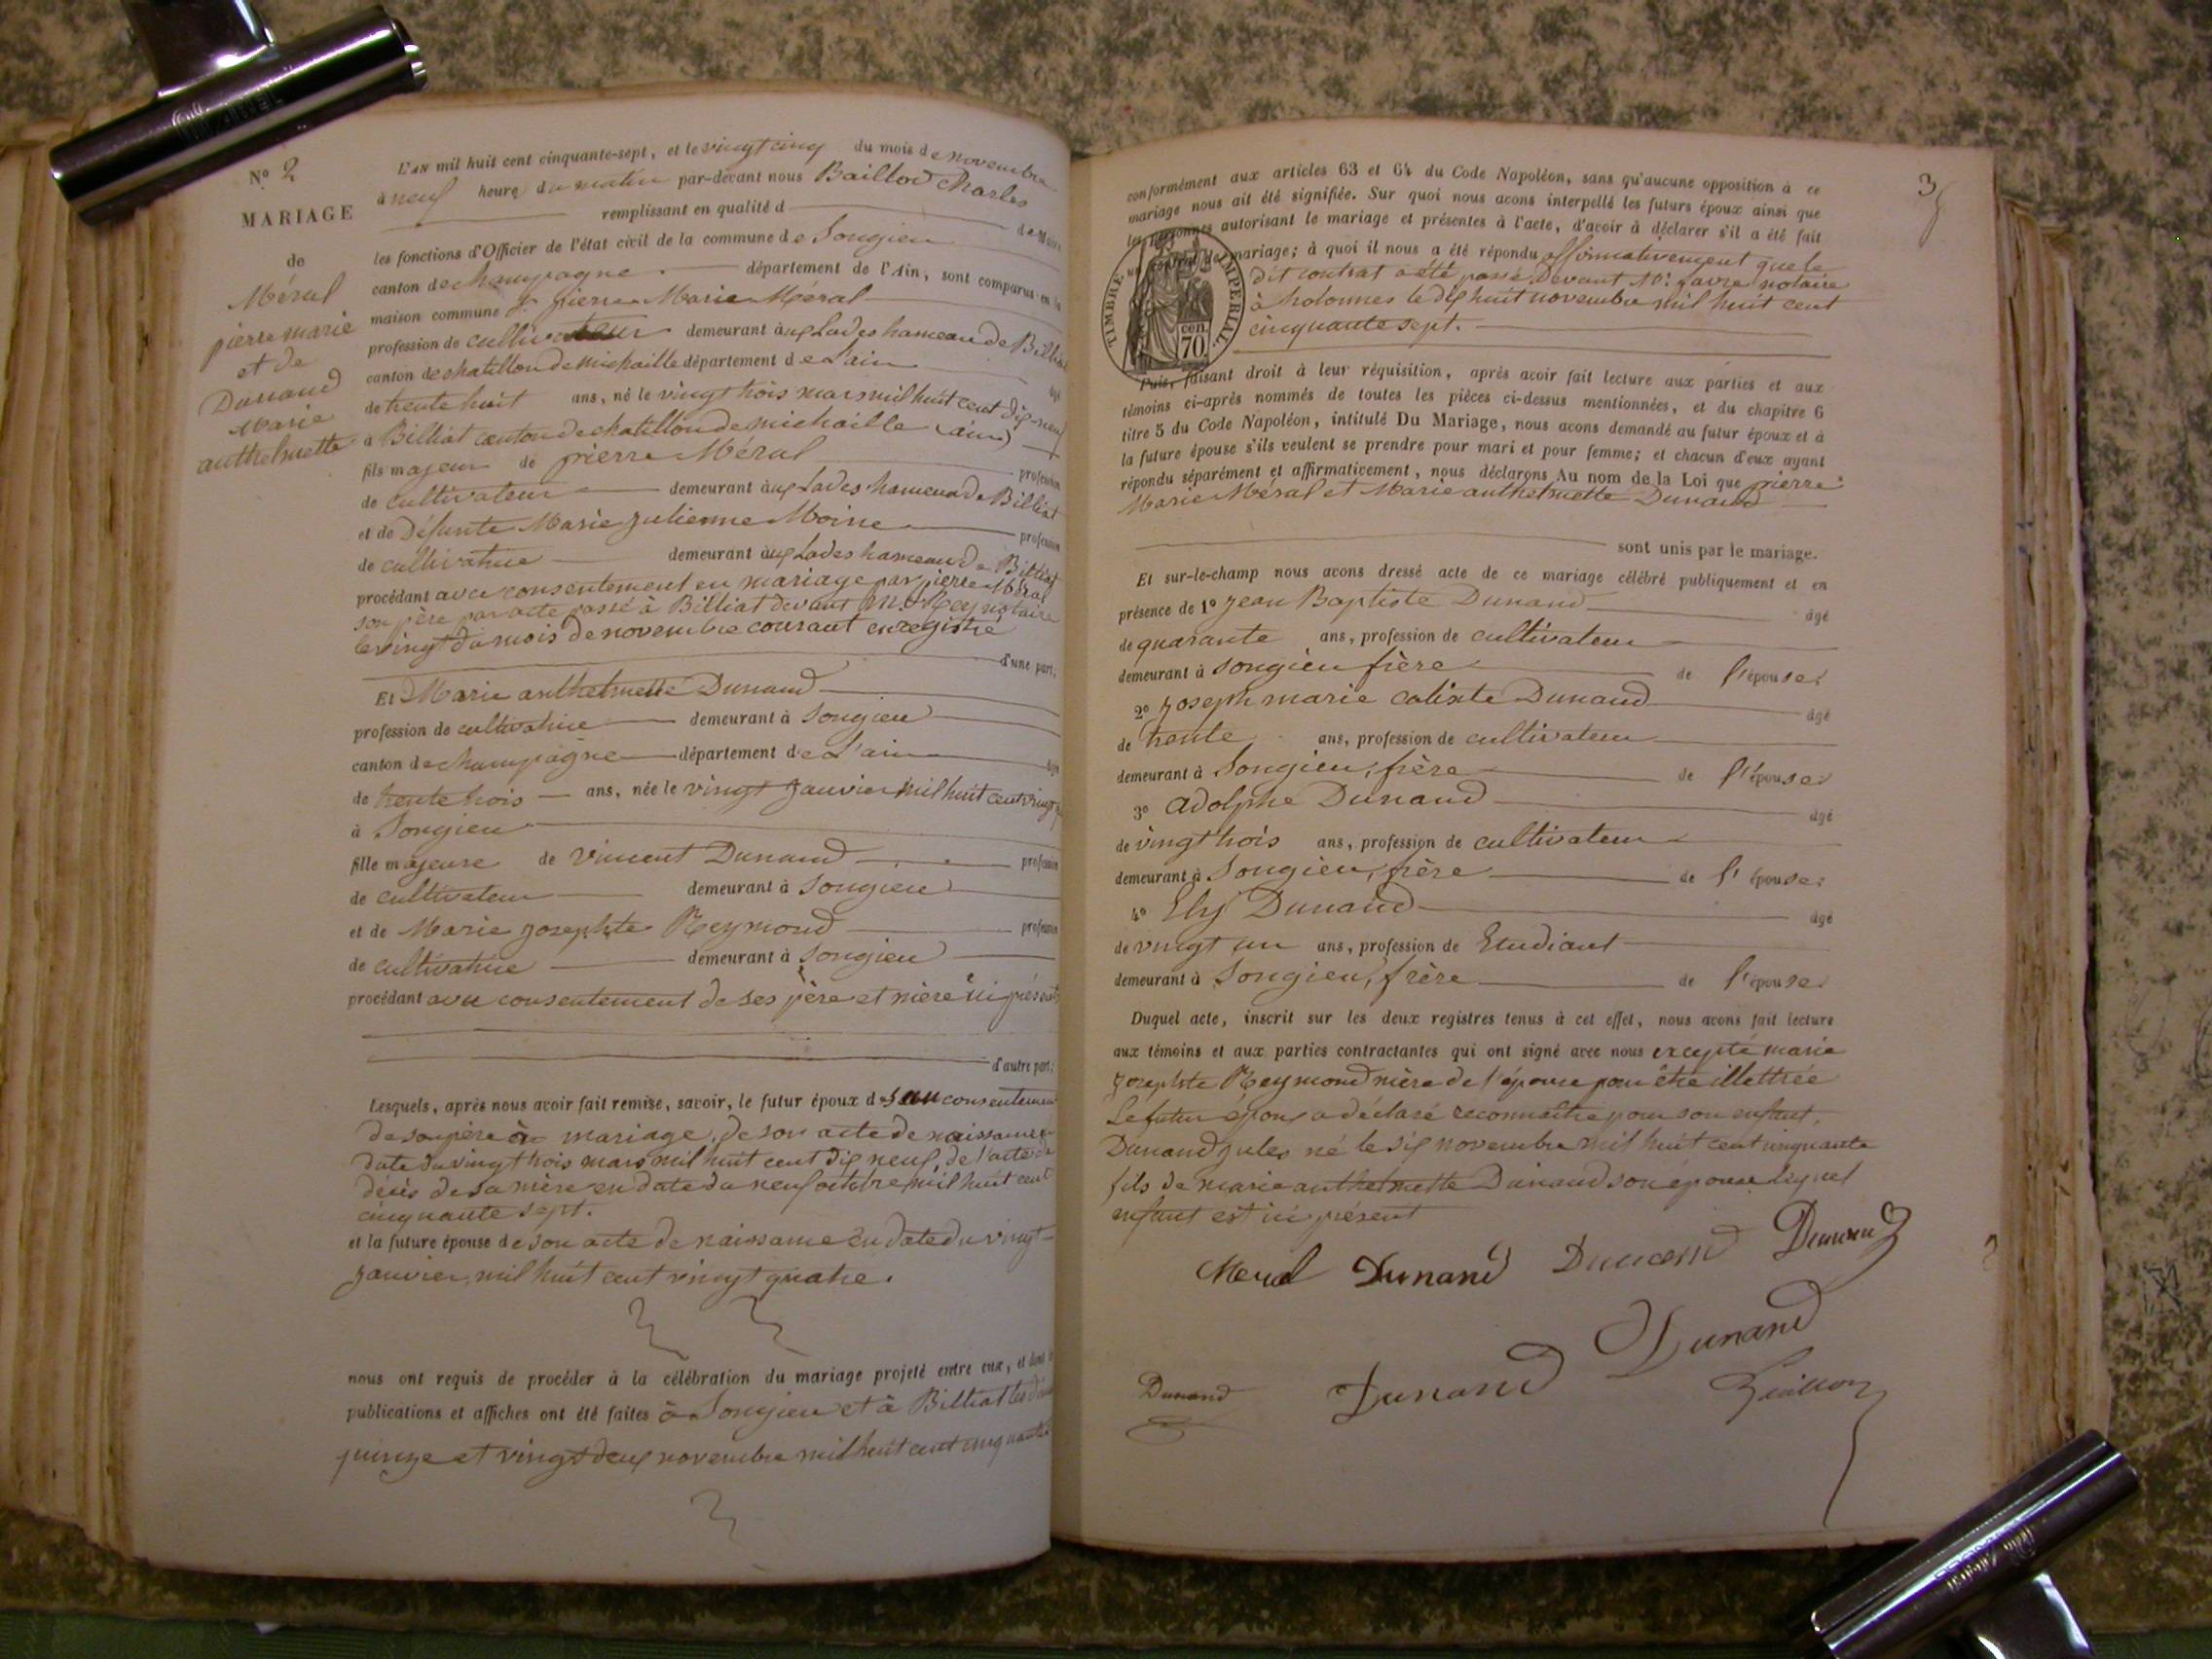 N.º 2
MARIAGE
de
Méral
pierre marie
et de
Dunand
Marie
anthelmette
L'AN mil huit cent cinquante-sept, et le vingt cinq du mois de novembre
à neuf heure du matin par-devant nous Baillod Charles
remplissant en qualité d de Maire
les fonctions d'Officier de l'état civil de la commune de Songieu
canton de champagne département de l'Ain, sont comparus en la
maison commune pierre Marie Méral
profession de cultivateur demeurant aux Lades hameau de Billiat
canton de chatillon de michaille département de L'ain âgé
de trente huit ans, né le vingt trois mars mil huit cent dix-neuf
à Billiat canton de chatillon de michaille (ain)
fils majeur de pierre Méral profession
de cultivateur demeurant aux Lades hameau de Billiat
et de Défunte Marie Julienne Moine profession
de cultivatrice demeurant aux Lades hameau de Billiat
procédant avec consentement en mariage par pierre Méral
son père par acte passé à Billiat devant M.e Rey notaire
le vingt du mois de novembre courant enregistré
d'une part.
Et Marie anthelmette Dunand
profession de cultivatrice demeurant à Songieu
canton de champagne département de L'ain âgé
de trente trois ans, née le vingt Janvier mil huit cent vingt
à Songieu
fille majeure de Vincent Dunand profession
de cultivateur demeurant à Songieu
et de Marie Josephte Reymond profession
de cultivatrice demeurant à Songieu
procédant avec consentement de ses père et mère ici présents
d'autre part;
Lesquels, après nous avoir fait remise, savoir, le futur époux de son consentement
de son père au mariage, de son acte de naissance en
date du vingt trois mars mil huit cent dix neuf, de l'acte de
décès de sa mère en date du neuf octobre mil huit cent
cinquante sept.
et la future épouse de son acte de naissance en date du vingt
Janvier mil huit cent vingt quatre.
nous ont requis de procéder à la célébration du mariage projeté entre eux, et dont les
publications et affiches ont été faites à Songieu et à Billiat les
quinze et vingt deux novembre mil huit cent cinquante
3
conformément aux articles 63 et 64 du Code Napoléon, sans qu'aucune opposition à ce
mariage nous ait été signifiée. Sur quoi nous avons interpellé les futurs époux ainsi que
les personnes autorisant le mariage et présentes à l'acte, d'avoir à déclarer s'il a été fait
un contrat de mariage; à quoi il nous a été répondu affirmativement que le
dit contrat a été passé devant M.e favre notaire
à hotonnes le dix huit novembre mil huit cent
cinquante sept.
TIMBRE IMPERIAL
70 cen.
Puis, faisant droit à leur réquisition, après avoir fait lecture aux parties et aux
témoins ci-après nommés de toutes les pièces ci-dessus mentionnées, et du chapitre 6
titre 5 du Code Napoléon, intitulé Du Mariage, nous avons demandé au futur époux et à
la future épouse s'ils veulent se prendre pour mari et pour femme; et chacun d'eux ayant
répondu séparément et affirmativement, nous déclarons Au nom de la Loi que pierre
Marie Méral et Marie anthelmette Dunand
sont unis par le mariage.
Et sur-le-champ nous avons dressé acte de ce mariage célébré publiquement et en
présence de 1º Jean Baptiste Dunand âgé
de quarante ans, profession de cultivateur
demeurant à Songieu frère de l'épouse.
2º Joseph marie calixte Dunand âgé
de trente ans, profession de cultivateur
demeurant à Songieu, frère de l'épouse.
3º Adolphe Dunand âgé
de vingt trois ans, profession de cultivateur
demeurant à Songieu, frère de l'épouse.
4º Ely Dunand âgé
de vingt un ans, profession de Etudiant
demeurant à Songieu, frère de l'épouse.
Duquel acte, inscrit sur les deux registres tenus à cet effet, nous avons fait lecture
aux témoins et aux parties contractantes qui ont signé avec nous excepté marie
Josephte Reymond mère de l'épouse pour être illettrée
Le futur époux a déclaré reconnaître pour son enfant,
Dunand Jules né le six novembre mil huit cent cinquante
fils de marie anthelmette Dunand son épouse lequel
enfant est ici présent
Meral Dunand Dunand Dunand
Dunand Dunand Dunand